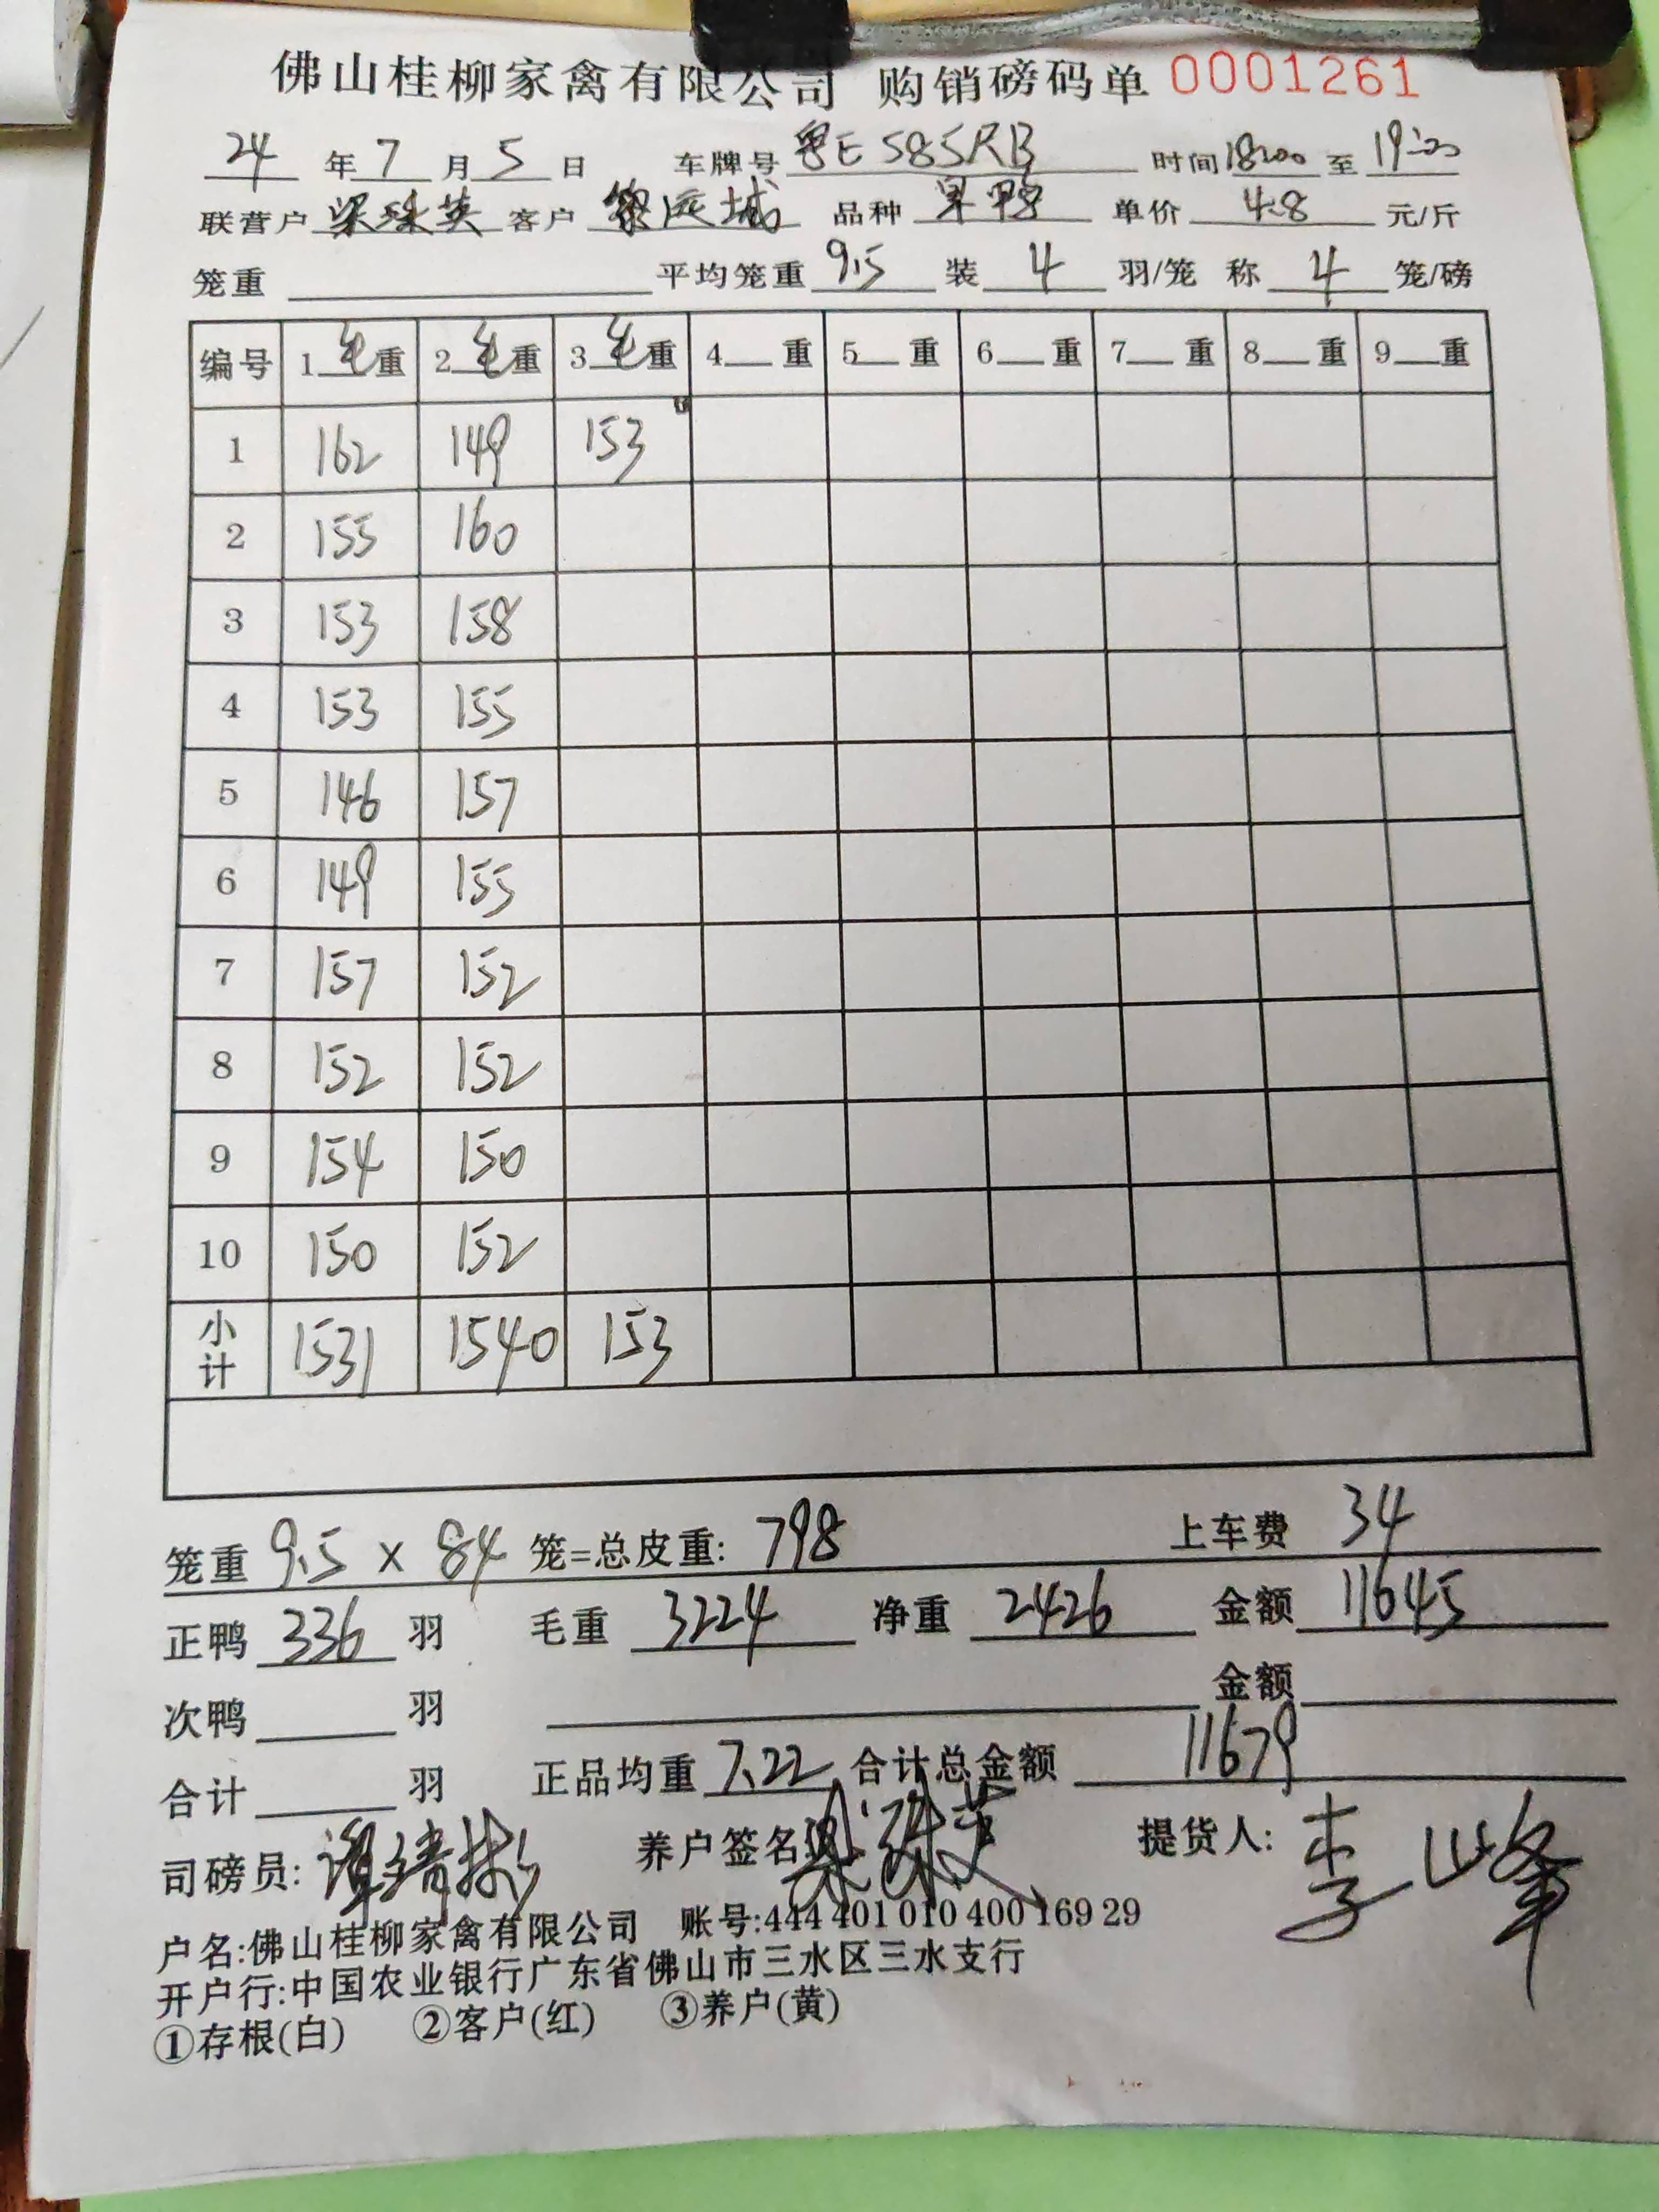 佛山桂柳家禽有限公司 购销磅码单 0001261
24 年 7 月 5 日 车牌号 粤E 585RB 时间 18:00 至 19:00
联营户 梁珠英 客户 黎 城 品种 鸭 单价 4.8 元/斤
笼重 平均笼重 9.5 装 4 羽/笼 称 4 笼/磅
编号 1 毛 重 2 毛 重 3 毛 重 4 重 5 重 6 重 7 重 8 重 9 重
1 162 149 153
2 155 160
3 153 158
4 153 155
5 146 157
6 149 155
7 157 152
8 152 152
9 154 150
10 150 152
小计 1531 1540 153
笼重 9.5 × 84 笼=总皮重: 798 上车费 34
正鸭 336 羽 毛重 3224 净重 2426 金额 11645
次鸭 羽 金额
合计 羽 正品均重 7.22 合计总金额 11679
司磅员: 谭靖彬 养户签名: 梁珠英 提货人: 李山峰
户名:佛山桂柳家禽有限公司 账号:444 401 010 400 169 29
开户行:中国农业银行广东省佛山市三水区三水支行
①存根(白) ②客户(红) ③养户(黄)